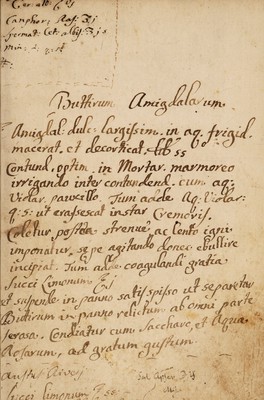 Camphor, Ras. ʒj
Spermat. Cet. albiss. ʒjs
Buttirum Amigdalarum.
Amigdal: dulc: largissim. in aq. frigid.
macerat. et decorticat. lib ss
Contund, optim. in Mortar. marmoreo
irrigando inter contundend. cum aq:
Violar. pauxillo. Tum adde Aq. Violar:
q: s: ut crassescat instar Cremoris.
Coletur postea strenue, ac lento igni
imponatur, sępe agitando donec ebullire
incipiat. Tum adde coagulandi gratia
Succi Limonum
et suspende in panno satis spisso ut separetur
Butirum in panno relictum ab omni parte
serosa. Condiatur cum Saccharo, et Aqua
Rosarum, ad gratum gustum
Succi Limonum ʒss